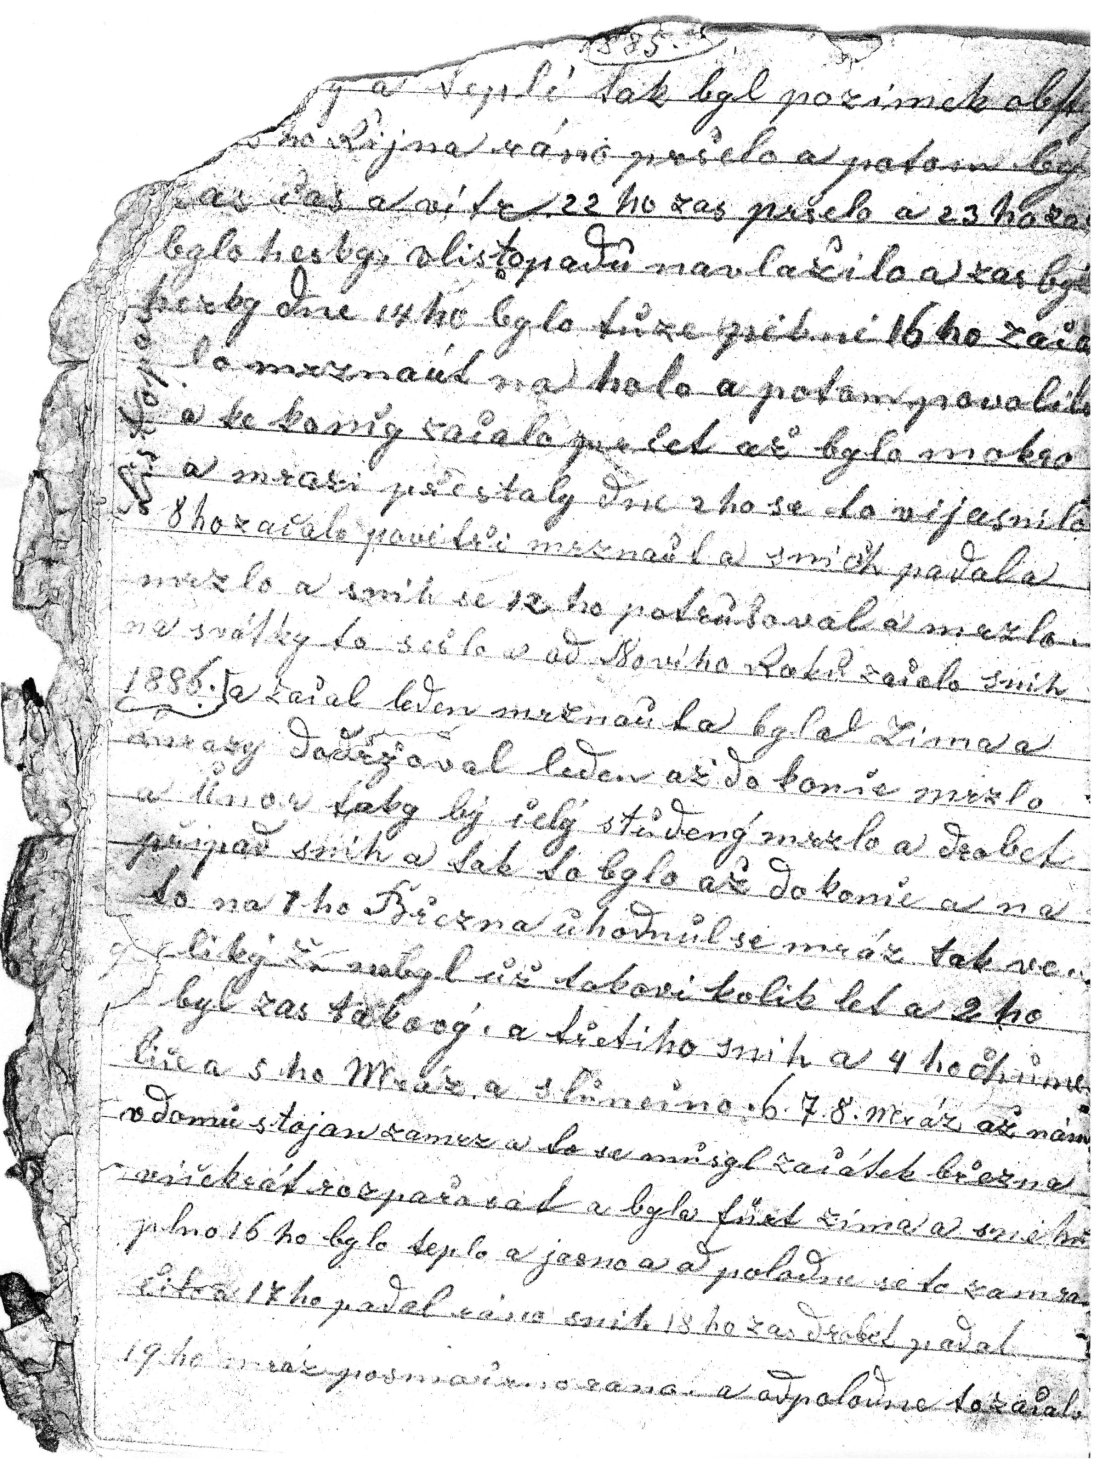 1885.
a teplé tak byl pozimek obst
ho Října ráno pršelo a potom by
zas čas a vítr. 22 ho zas pršelo a 23 ho zas
bylo hesky, vlistopadů navlažilo a zas byl
hezky dne 14 ho bylo tůze pěkně 16 ho zača
lo mrznaůt na holo a potom povolilo
a ke konig začalo pršet až bylo mokro
a mrazi přestaly dne 2 ho se to vijasnilo
Listopad
8 ho začalo povětři mrznaůt a snich padala
mrzlo a snih se 12 ho potrůšoval a mrzlo.
na svátky to sešlo a od Noviho Roků začalo snih
1886. a začal leden mrznaůt a byla Zima a
mrazy dodržoval leden až do konce mrzlo
a Únor taky bý cělý stůdený mrzlo a drobet
připad snih a tak to bylo až do konce a na
to na 1 ho Března ůhodnůl se mráz tak ve
liký že nebyl ůž takovi kolik let a 2 ho
byl zas takový. a třetiho snih a 4 ho chůme
lice a 5 ho Mráz a slůnečno. 6. 7. 8. Mráz až nám
vdomů stojan zamrz a to se můsyl začátek března
vičekrát rozpařovat a byla fůrt zima a sněhů
plno 16 ho bylo teplo a jasno a odpoladne se to zamra
čilo a 17 ho padal ráno snih 18 ho zas drobet padal
19 ho mráz posmaůrno rano. a odpoladne to začalo